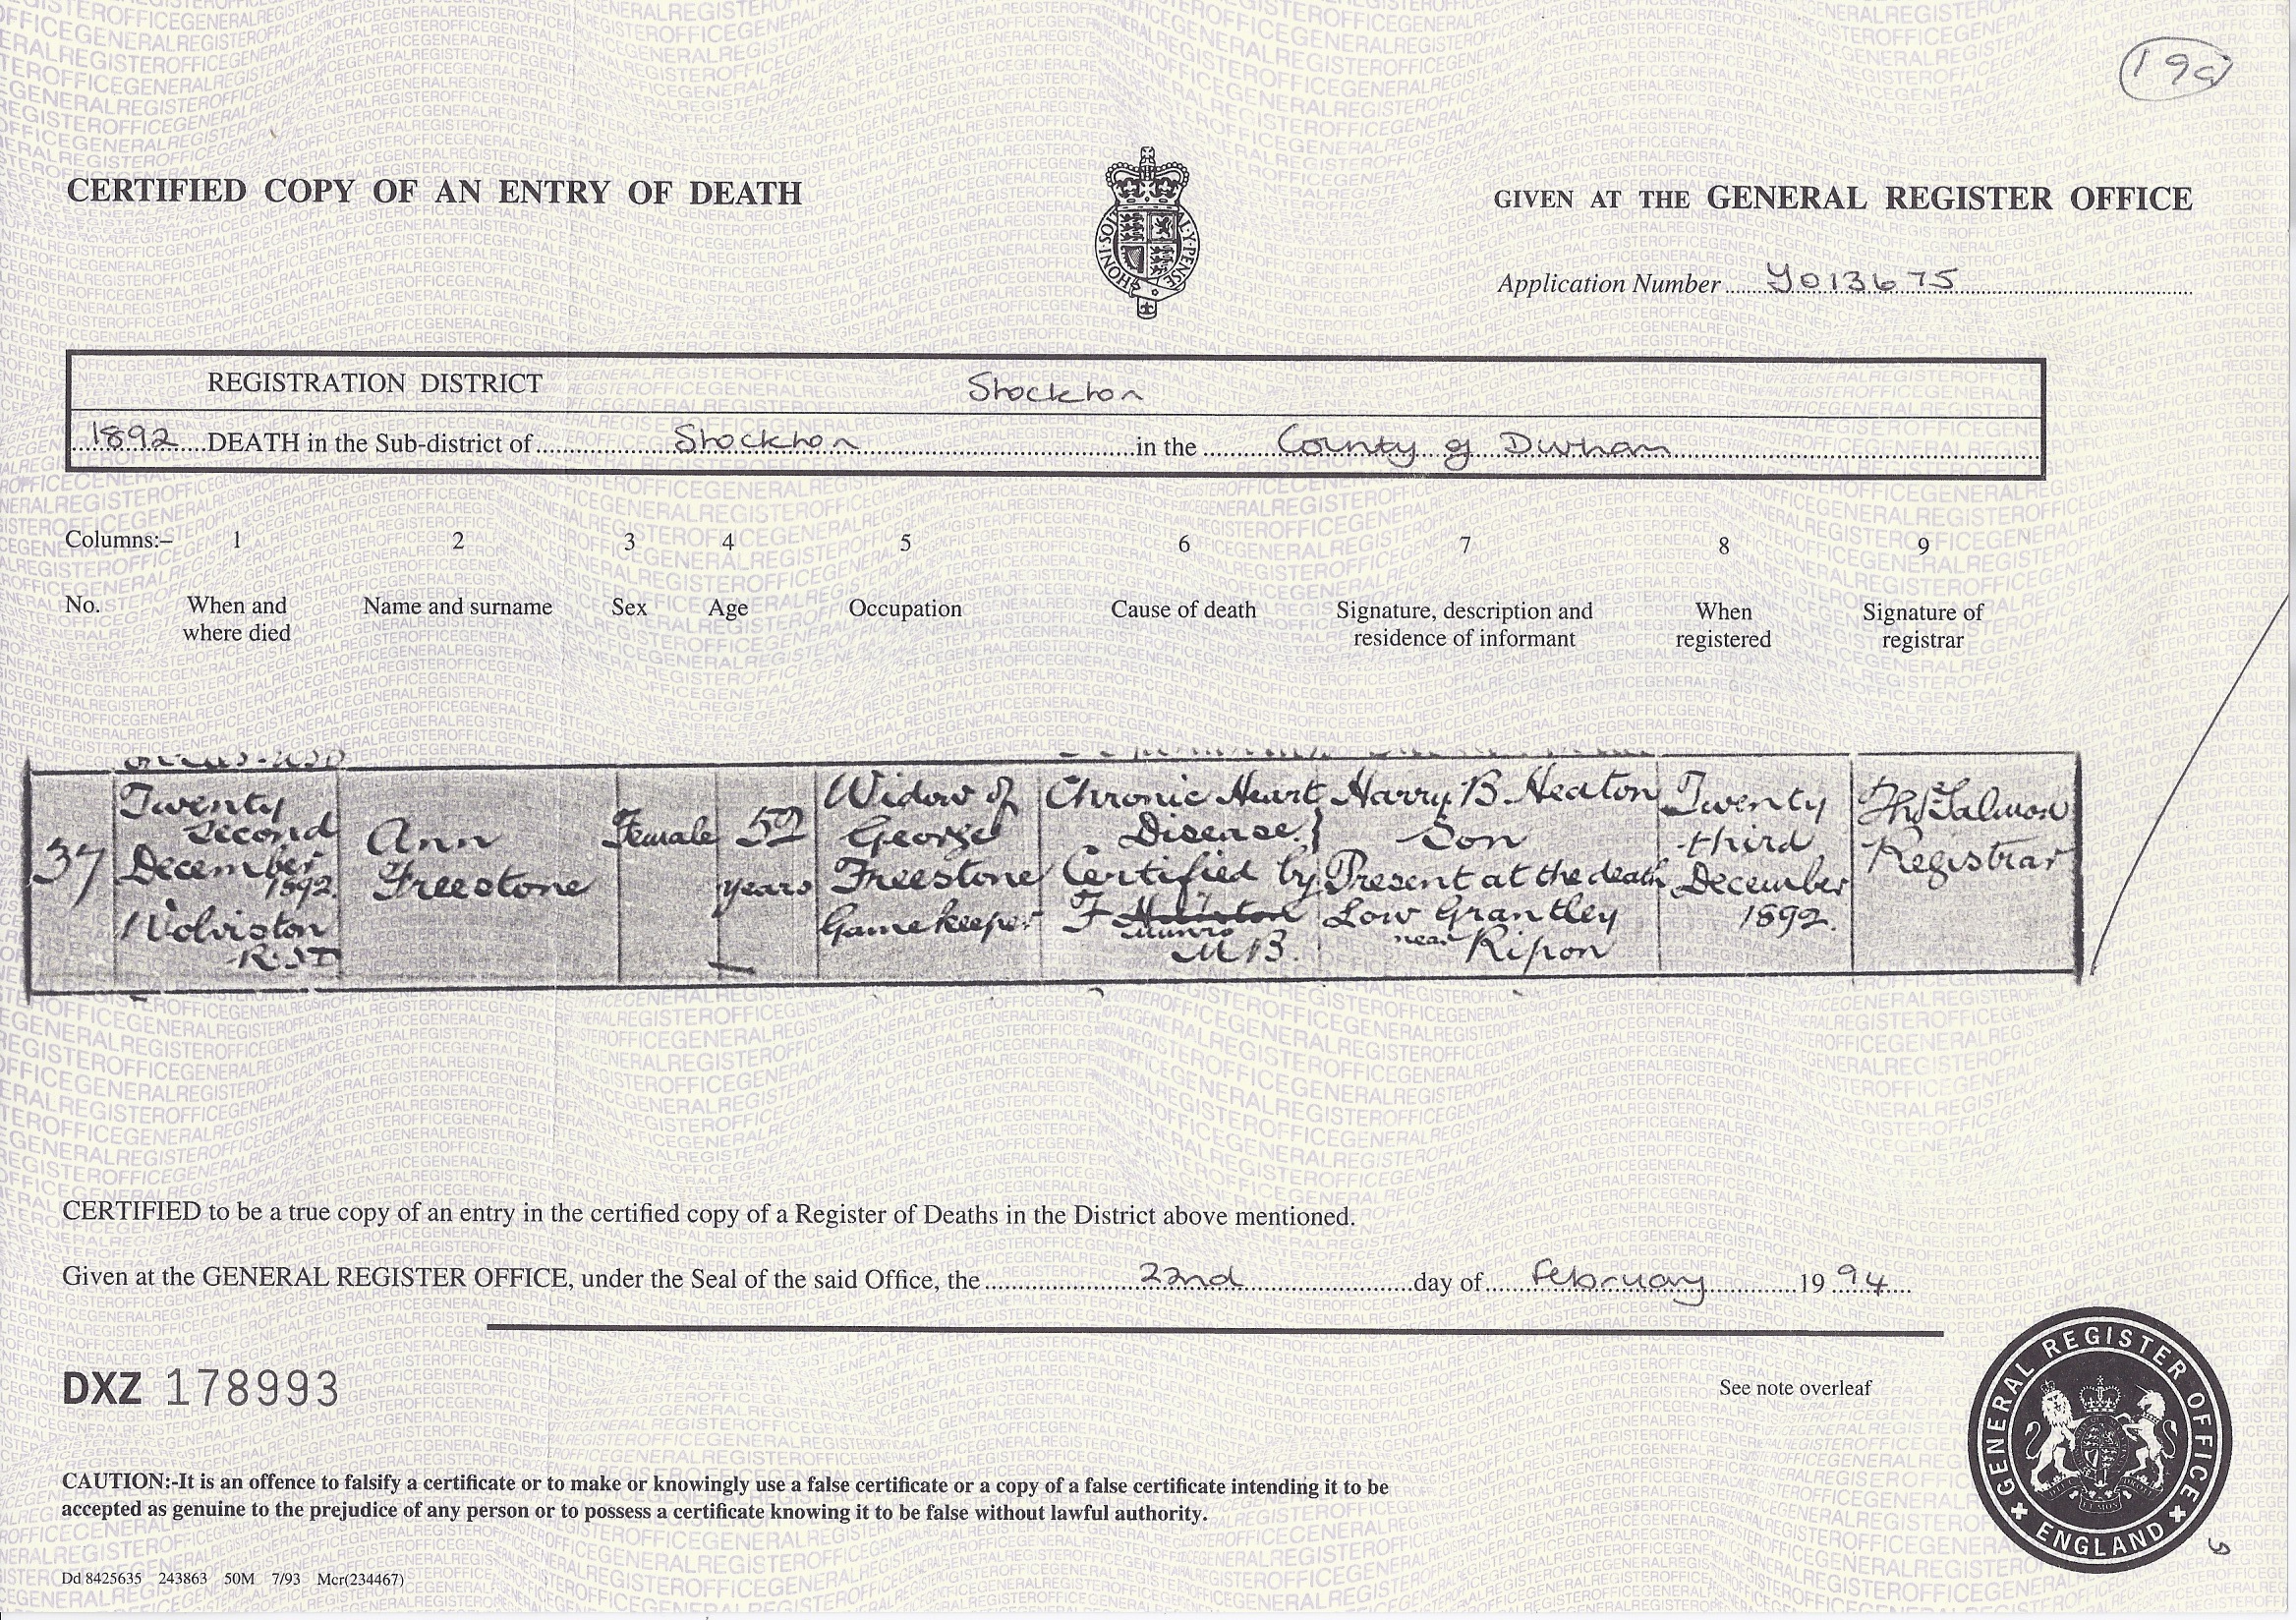 19a
CERTIFIED COPY OF AN ENTRY OF DEATH
GIVEN AT THE GENERAL REGISTER OFFICE
HONI·SOIT Y·PENSE
Application Number Y013675
REGISTRATION DISTRICT Stockton
1892 DEATH in the Sub-district of Stockton in the County of Durham
Columns:– 1 2 3 4 5 6 7 8 9
No. When and where died Name and surname Sex Age Occupation Cause of death Signature, description and residence of informant When registered Signature of registrar
37
Twenty
second
December
1892.
Wolviston
R.S.D
Ann
Freestone
Female
59
years
Widow of
George
Freestone
Gamekeeper
Chronic Heart
Disease
Certified by
F
Munro
M B.
Harry B. Heaton
Son
Present at the death
Low Grantley
near Ripon
Twenty
third
December
1892.
Thos Salmon
Registrar
CERTIFIED to be a true copy of an entry in the certified copy of a Register of Deaths in the District above mentioned.
Given at the GENERAL REGISTER OFFICE, under the Seal of the said Office, the 22nd day of February 19 94
DXZ 178993
See note overleaf
GENERAL REGISTER OFFICE
ENGLAND
CAUTION:-It is an offence to falsify a certificate or to make or knowingly use a false certificate or a copy of a false certificate intending it to be
accepted as genuine to the prejudice of any person or to possess a certificate knowing it to be false without lawful authority.
Dd 8425635 243863 50M 7/93 Mcr(234467)